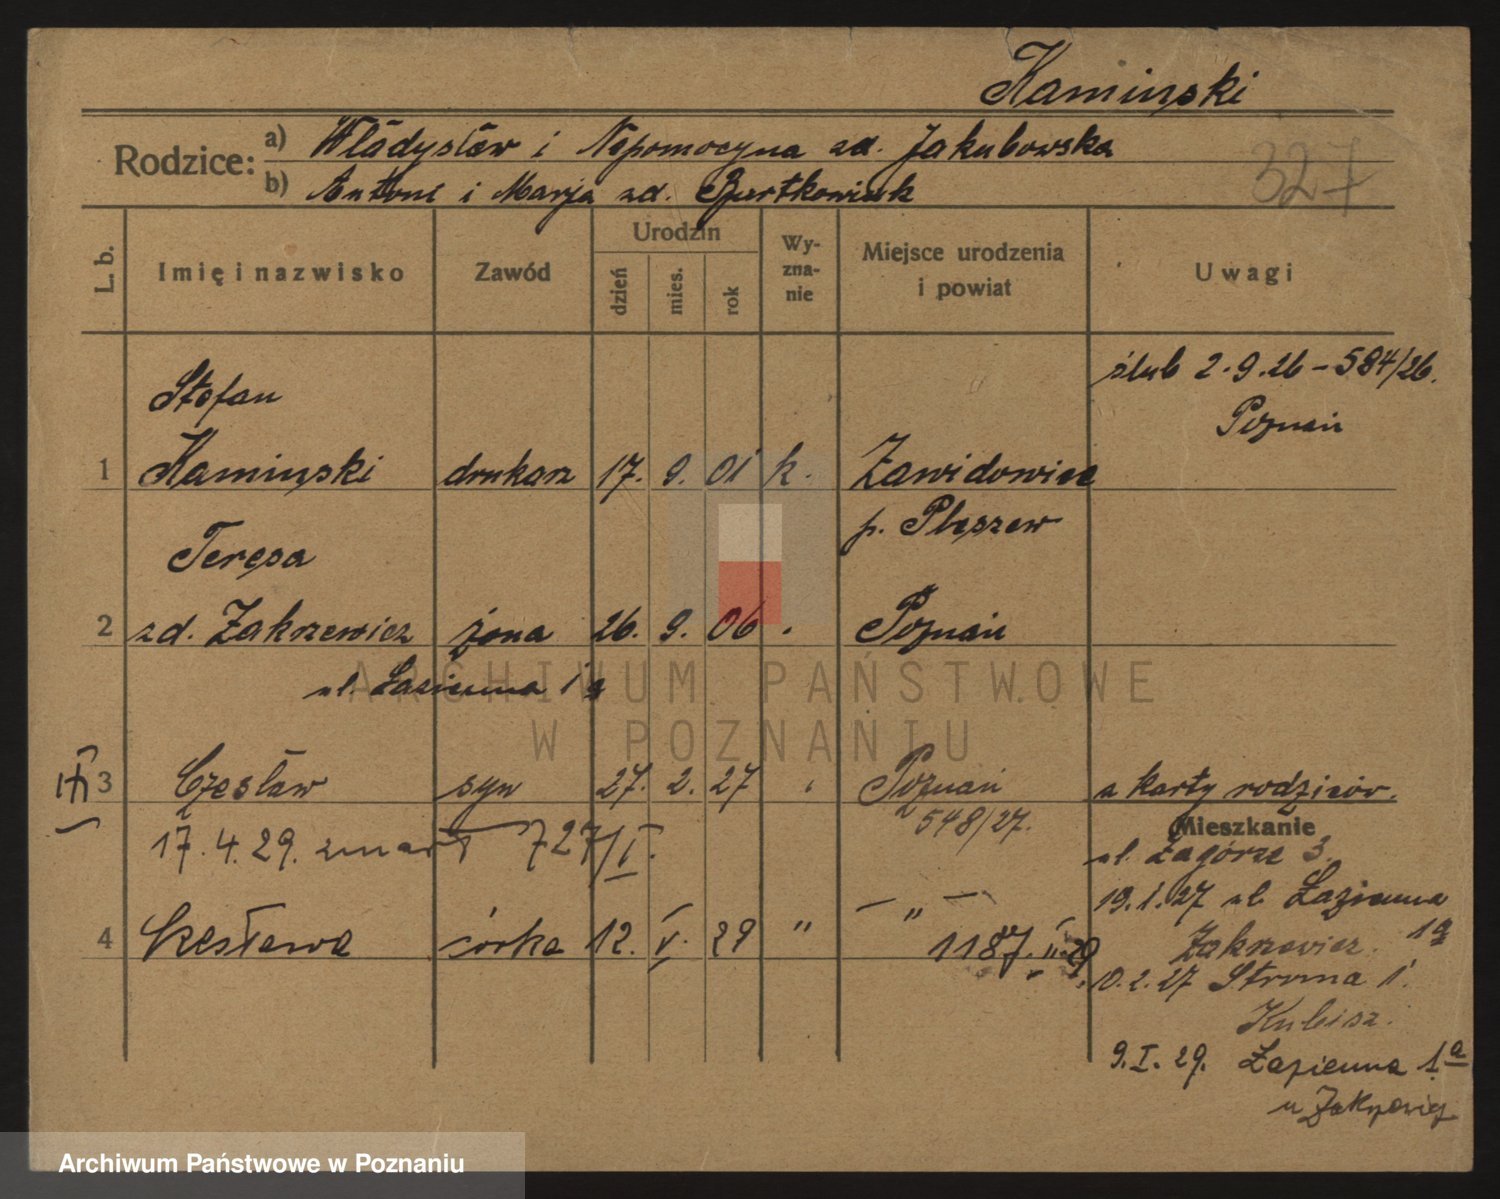 Kamiński
327
Rodzice: a) Władysław i Nepomocyna zd. Jakubowska
b) Antoni i Marja zd. Bartkowiak
L. b. Imię i nazwisko Zawód Urodzin dzień mies. rok Wyznanie Miejsce urodzenia i powiat Uwagi
ślub 2.9.26 – 584/26.
Poznań
Stefan
1 Kamiński drukarz 17. 9. 01 k. Zawidowice
p. Pleszew
Teresa
2 zd. Zakrzewicz żona 26. 9. 06 . Poznań
ul. Łazienna 1a
3 Czesław syn 27. 2. 27 Poznań z karty rodziców.
548/27.
17.4.29. zmarł 727/I.
Mieszkanie
ul. Zagórze 3.
19.1.27 ul. Łazienna 1a
Zakrzewicz.
4 Czesława córka 12. V. 29 " — " —
1187. II. 29
10.2.27 Stroma 1.
Kubisz.
9.I.29. Łazienna 1a
u Zakrzewicz
ARCHIWUM PAŃSTWOWE
W POZNANIU
Archiwum Państwowe w Poznaniu